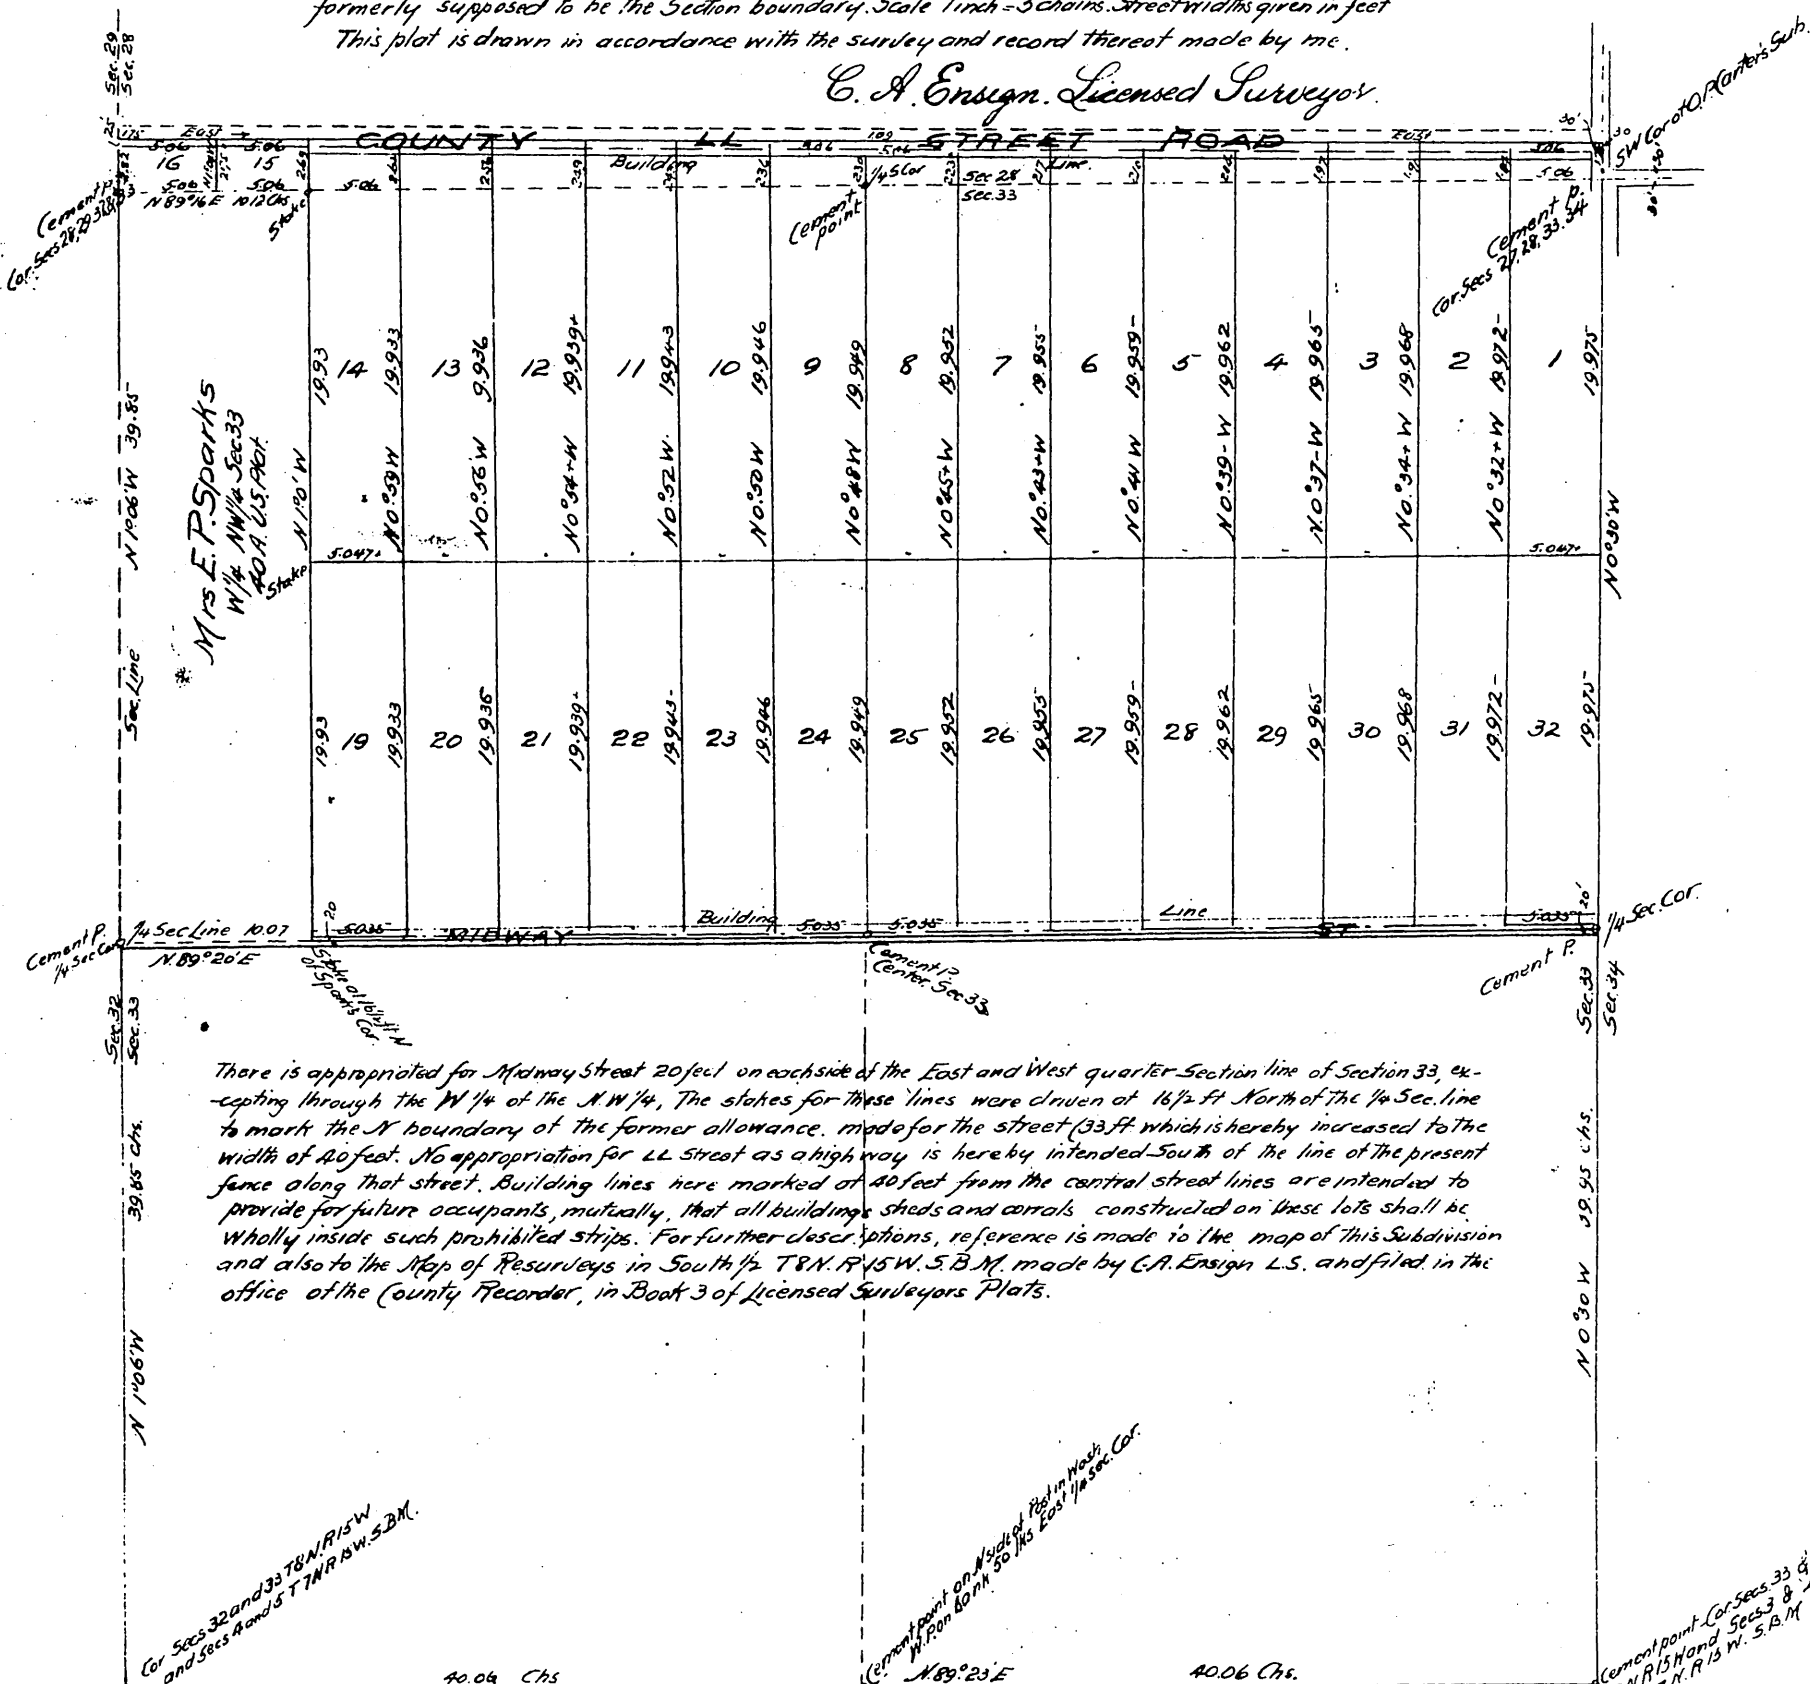 formerly supposed to be the Section boundary. Scale 1 inch = 5 chains. Street widths given in feet
This plat is drawn in accordance with the survey and record thereof made by me.
C. A. Ensign. Licensed Surveyor.
Sec. 29
Sec. 28
SW Cor of O.P. Carter's Sub.
East
COUNTY LL STREET ROAD
East
30'
30
5.06 5.06
16 15
5.06 5.06
N 89°16'E 10.12 Chs
Building Line
1/4 S Cor
Sec 28
Sec. 33
5.06
5.06
5.06
Cement P.
Cor. Secs 28, 29, 32, 33
Stake
Cement point
Cement P.
Cor. Secs 27, 28, 33, 34
19.93 14 19.933 13 9.936 12 19.939+ 11 19.943 10 19.946 9 19.949 8 19.952 7 19.955 6 19.959- 5 19.962 4 19.965 3 19.968 2 19.972- 1 19.975
N 1°06'W 39.85
Mrs E. P. Sparks
W 1/4 NW 1/4 Sec 33
40 A. U.S. Plat.
Stake
N 1°0'W
N 0°59 W
N 0°56'W
N 0°54+W
N 0°52 W.
N 0°50 W
N 0°48 W
N 0°45+W
N 0°43+W
N 0°41 W
N 0°39- W
N 0°37- W
N 0°34+ W
N 0°32+W
N 0°30'W
5.047+
5.047+
Sec. Line
19.93 19 19.933 20 19.936 21 19.939+ 22 19.943- 23 19.946 24 19.949 25 19.952 26 19.955 27 19.959- 28 19.962 29 19.965 30 19.968 31 19.972- 32 19.975
Cement P.
1/4 Sec Cor
1/4 Sec Line 10.07
N. 89°20'E
20
5.035
Building
5.035 5.035
Line
5.035
20'
1/4 Sec. Cor.
MIDWAY ST
Stake at 16 1/2 ft N
of Sparks Cor.
Cement P.
Center. Sec 33
Cement P.
Sec. 32
Sec. 33
Sec. 33
Sec. 34
There is appropriated for Midway Street 20 feet on each side of the East and West quarter Section line of Section 33, ex-
-cepting through the W 1/4 of the N.W 1/4, The stakes for these lines were driven at 16 1/2 ft North of the 1/4 Sec. line
to mark the N boundary of the former allowance. made for the street (33 ft which is hereby increased to the
width of 40 feet. No appropriation for LL Street as a high way is hereby intended South of the line of the present
fence along that street. Building lines here marked at 40 feet from the central street lines are intended to
provide for future occupants, mutually, that all buildings sheds and corrals constructed on these lots shall be
wholly inside such prohibited strips. For further descriptions, reference is made to the map of this Subdivision
and also to the Map of Resurveys in South 1/2 T8N. R 15 W. S. B. M. made by C. A. Ensign L.S. and filed in the
office of the County Recorder, in Book 3 of Licensed Surveyors Plats.
39.85 Chs.
N 1°06'W
39.95 Chs.
N 0°30 W
Cor Secs 32 and 33 T8N. R15W
and Secs 4 and 5 T7N R15W. S.B.M.
Cement point on N side of Post in Wash
W. P. on bank 50 lks East 1/4 Sec. Cor.
Cement point Cor. Secs. 33 &
R15W and Secs 3 &
N. R 15 W. S. B. M
40.06 Chs
N. 89°23'E
40.06 Chs.